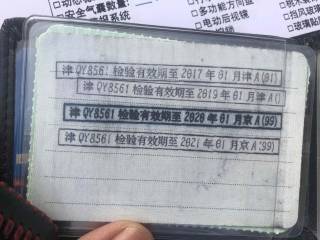 多功能方向盘
安全气囊数量:
电动后视镜
挡风玻璃
津 QY8561 检验有效期至 2017 年 01 月津 A(01)
津 QY8561 检验有效期至 2019 年 01 月津 A()
津 QY8561 检验有效期至 2020 年 01 月京 A(99)
津 QY8561 检验有效期至 2021 年 01 月京 A(99)